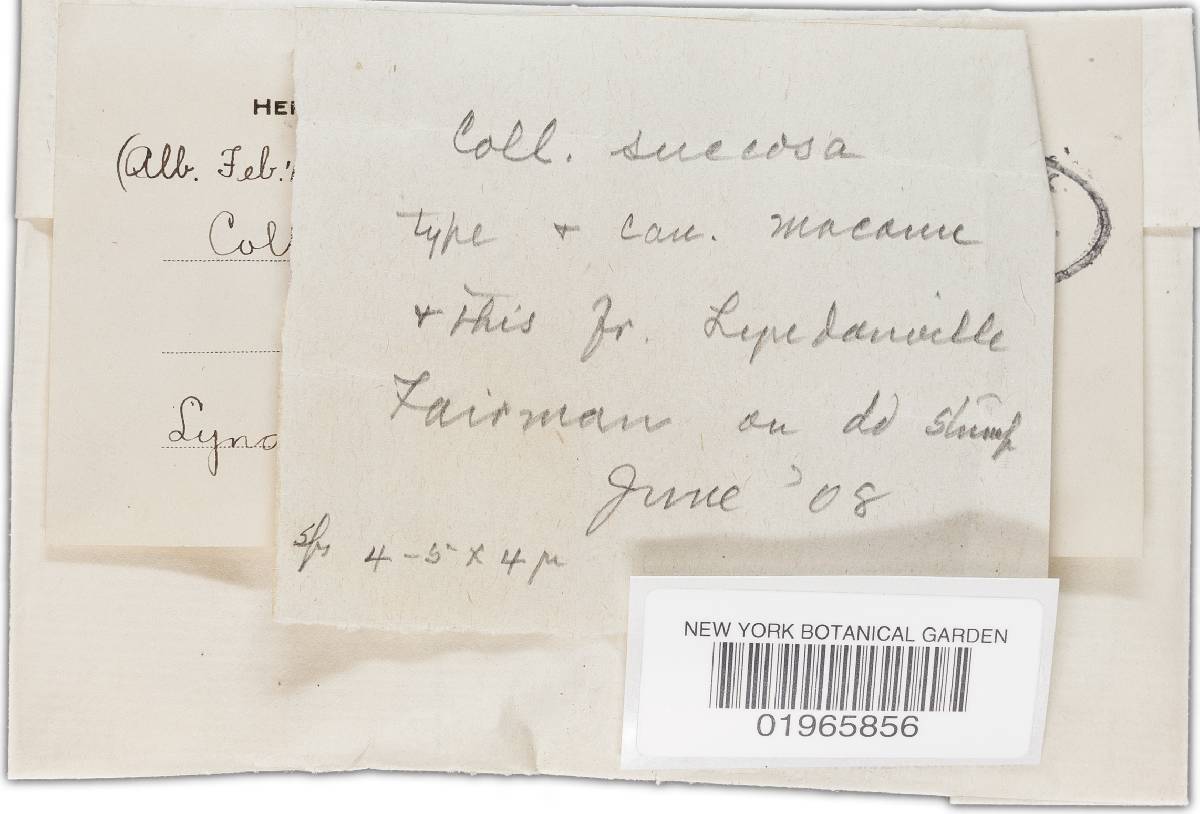 HE
(Alb. Feb.
Coll. succosa
type + Can. Macoun
Col
+ this fr. Lyndonville
Fairman on dd stump
Lyn
June '08
sps 4-5 x 4 µ
NEW YORK BOTANICAL GARDEN
01965856